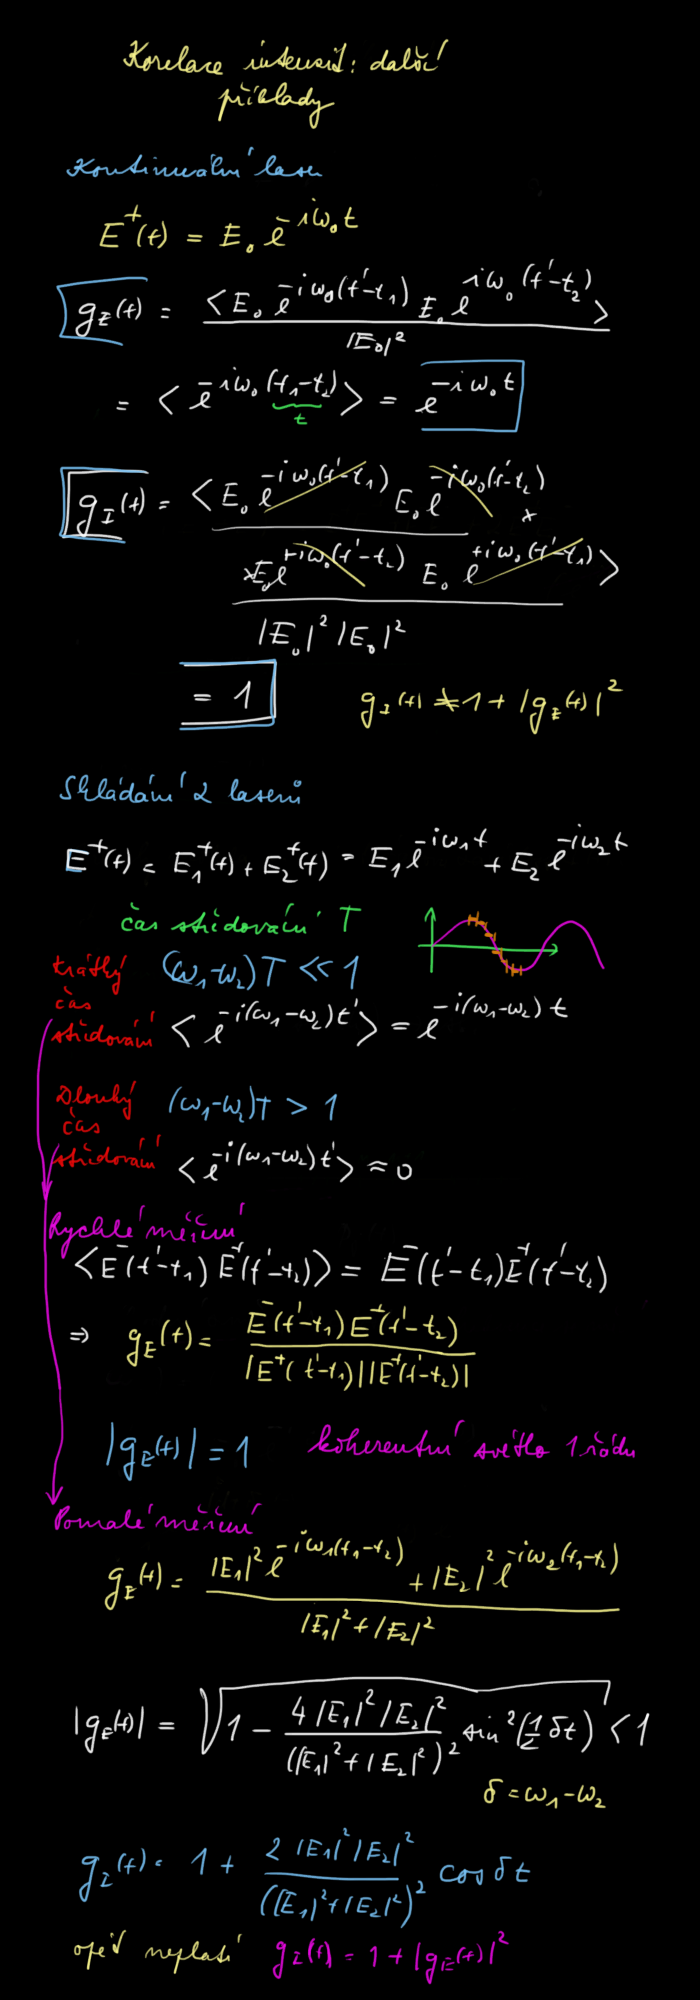 Korelace intensit: další
příklady
Kontinuální laser
E⁺(t) = E₀ e^{-iω₀t}
g_E(t) = <E₀ e^{-iω₀(t'-t₁)} E₀ e^{iω₀(t'-t₂)}> / |E₀|²
= <e^{-iω₀(t₁-t₂)}> = e^{-iω₀t}
t
g_I(t) = <E₀ e^{-iω₀(t'-t₁)} E₀ e^{-iω₀(t'-t₂)} ×
×E₀ e^{+iω₀(t'-t₂)} E₀ e^{+iω₀(t'-t₁)}>
|E₀|² |E₀|²
= 1 g_I(t) ≠ 1 + |g_E(t)|²
Skládání 2 laserů
E⁺(t) = E₁⁺(t) + E₂⁺(t) = E₁ e^{-iω₁t} + E₂ e^{-iω₂t}
čas středování T
krátký (ω₁-ω₂)T << 1
čas
středování <e^{-i(ω₁-ω₂)t'}> = e^{-i(ω₁-ω₂)t}
Dlouhý (ω₁-ω₂)T > 1
čas
středování <e^{-i(ω₁-ω₂)t'}> ≈ 0
Rychlé měření
<E⁻(t'-t₁) E⁺(t'-t₂)> = E⁻(t'-t₁) E⁺(t'-t₂)
⇒ g_E(t) = E⁻(t'-t₁) E⁺(t'-t₂) / |E⁺(t'-t₁)||E⁺(t'-t₂)|
|g_E(t)| = 1 koherentní světlo 1 řádu
Pomalé měření
g_E(t) = |E₁|² e^{-iω₁(t₁-t₂)} + |E₂|² e^{-iω₂(t₁-t₂)} / |E₁|² + |E₂|²
|g_E(t)| = √(1 - 4|E₁|²|E₂|² / (|E₁|²+|E₂|²)² sin²(½ δt)) < 1
δ = ω₁-ω₂
g_I(t) = 1 + 2|E₁|²|E₂|² / (|E₁|²+|E₂|²)² cos δt
opět neplatí g_I(t) = 1 + |g_E(t)|²